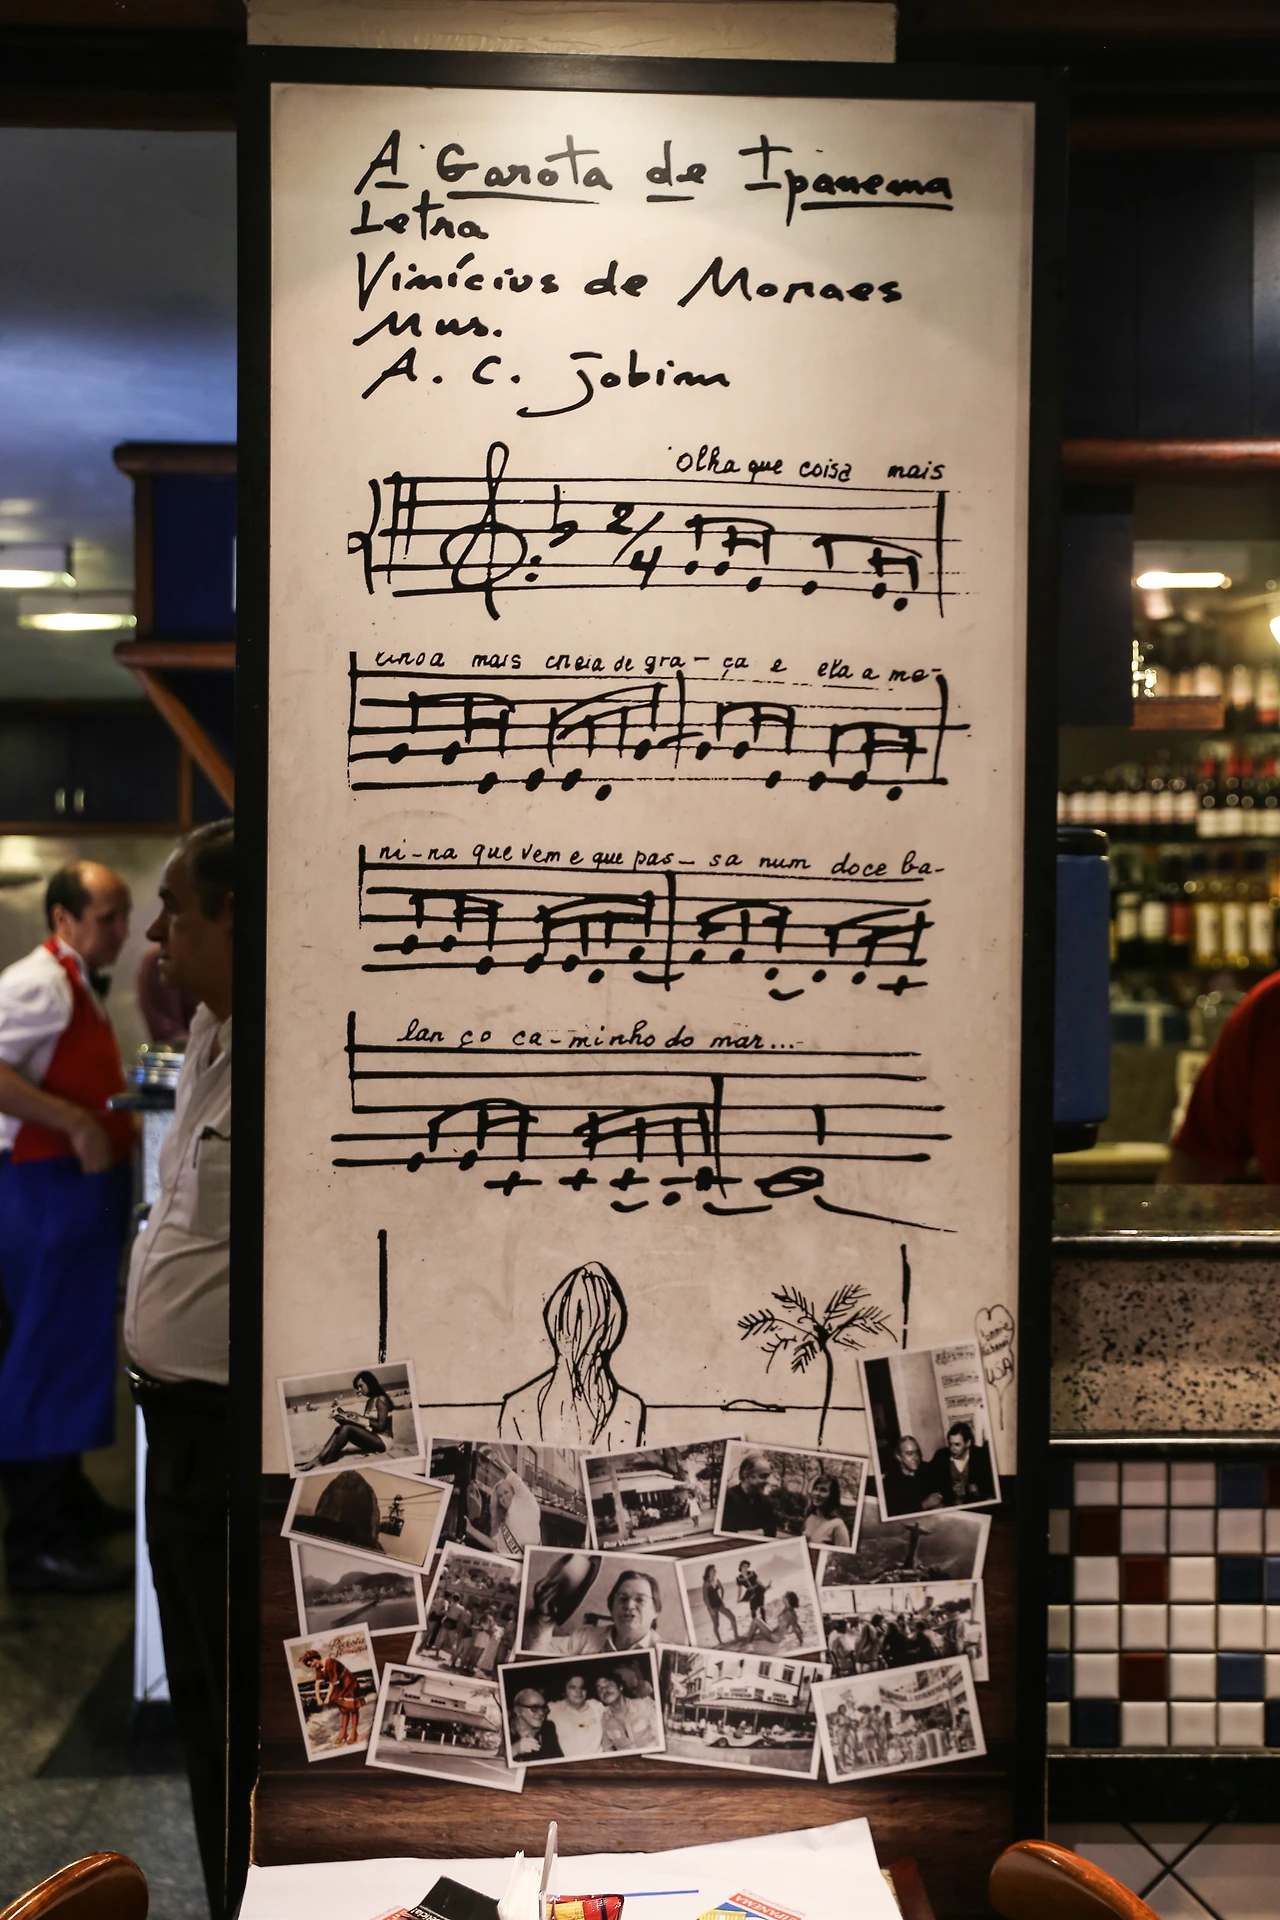 A Garota de Ipanema
Letra
Vinícius de Moraes
Mus.
A. C. Jobim
Olha que coisa mais
2/4
linda mais cheia de gra - ça e ela a me-
ni-na que vem e que pas - sa num doce ba-
lan ço ca-minho do mar...
USA
IPANEMA